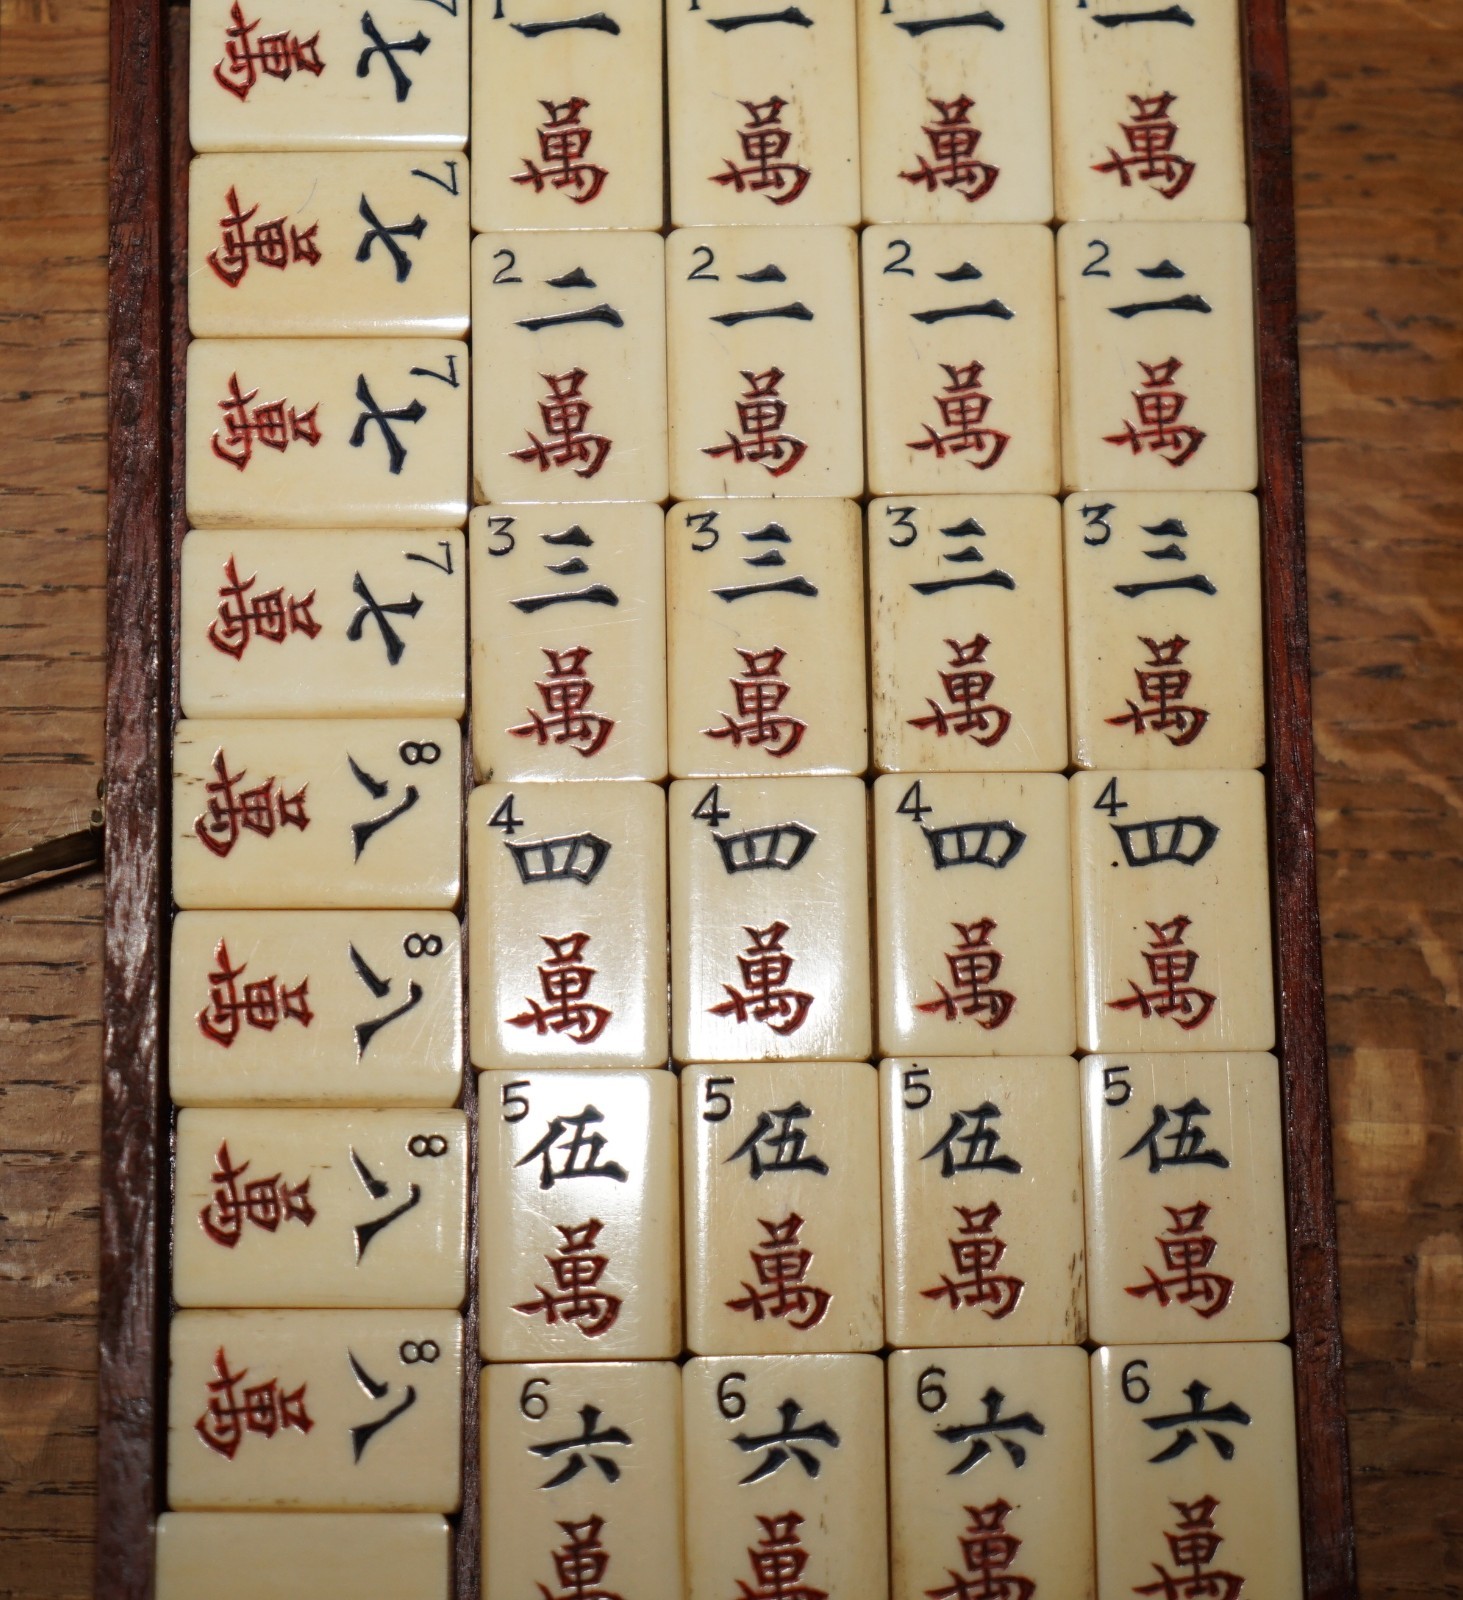 7 七 萬
7 七 萬
7 七 萬
7 七 萬
8 八 萬
8 八 萬
8 八 萬
8 八 萬
1 一 1 一 1 一 1 一
萬 萬 萬 萬
2 二 2 二 2 二 2 二
萬 萬 萬 萬
3 三 3 三 3 三 3 三
萬 萬 萬 萬
4 四 4 四 4 四 4 四
萬 萬 萬 萬
5 伍 5 伍 5 伍 5 伍
萬 萬 萬 萬
6 六 6 六 6 六 6 六
萬 萬 萬 萬